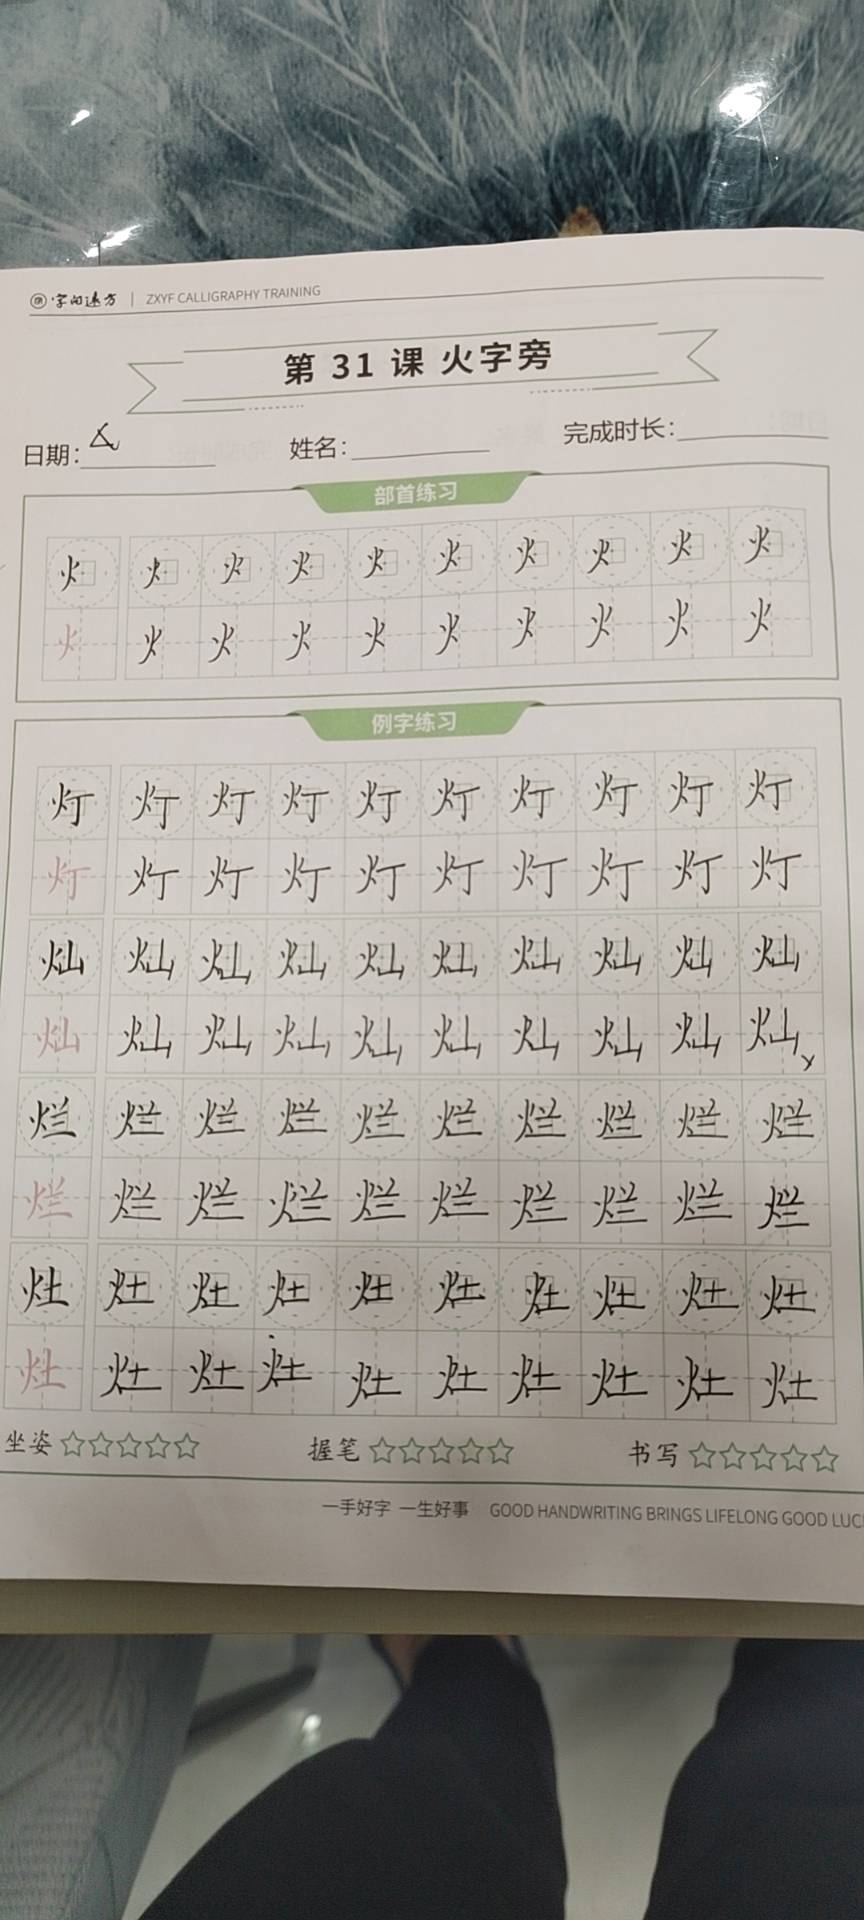 字向远方 | ZXYF CALLIGRAPHY TRAINING
第 31 课 火字旁
日期: 姓名: 完成时长:
部首练习
火 火 火 火 火 火 火 火 火 火
火 火 火 火 火 火 火 火 火 火
例字练习
灯 灯 灯 灯 灯 灯 灯 灯 灯 灯
灯 灯 灯 灯 灯 灯 灯 灯 灯 灯
灿 灿 灿 灿 灿 灿 灿 灿 灿 灿
灿 灿 灿 灿 灿 灿 灿 灿 灿 灿
烂 烂 烂 烂 烂 烂 烂 烂 烂 烂
烂 烂 烂 烂 烂 烂 烂 烂 烂 烂
灶 灶 灶 灶 灶 灶 灶 灶 灶 灶
灶 灶 灶 灶 灶 灶 灶 灶 灶 灶
坐姿 ☆☆☆☆☆ 握笔 ☆☆☆☆☆ 书写 ☆☆☆☆☆
一手好字 一生好事 GOOD HANDWRITING BRINGS LIFELONG GOOD LUC